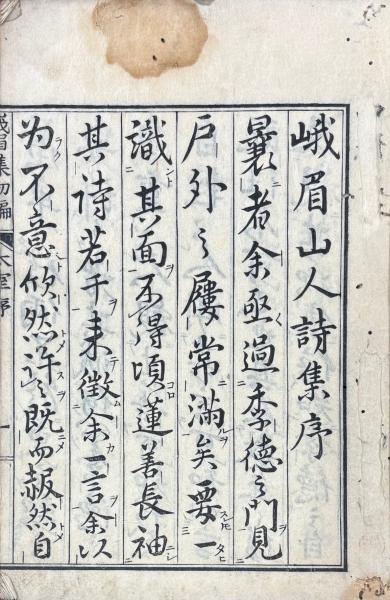 峨眉山人詩集序
曩者余亟過季德之門見
戶外之屨常滿矣要一
識其面不得頃蓮善長袖
其詩若干来徵余一言余以
为不意欣然許之既而赧然自
峨眉集初編 序